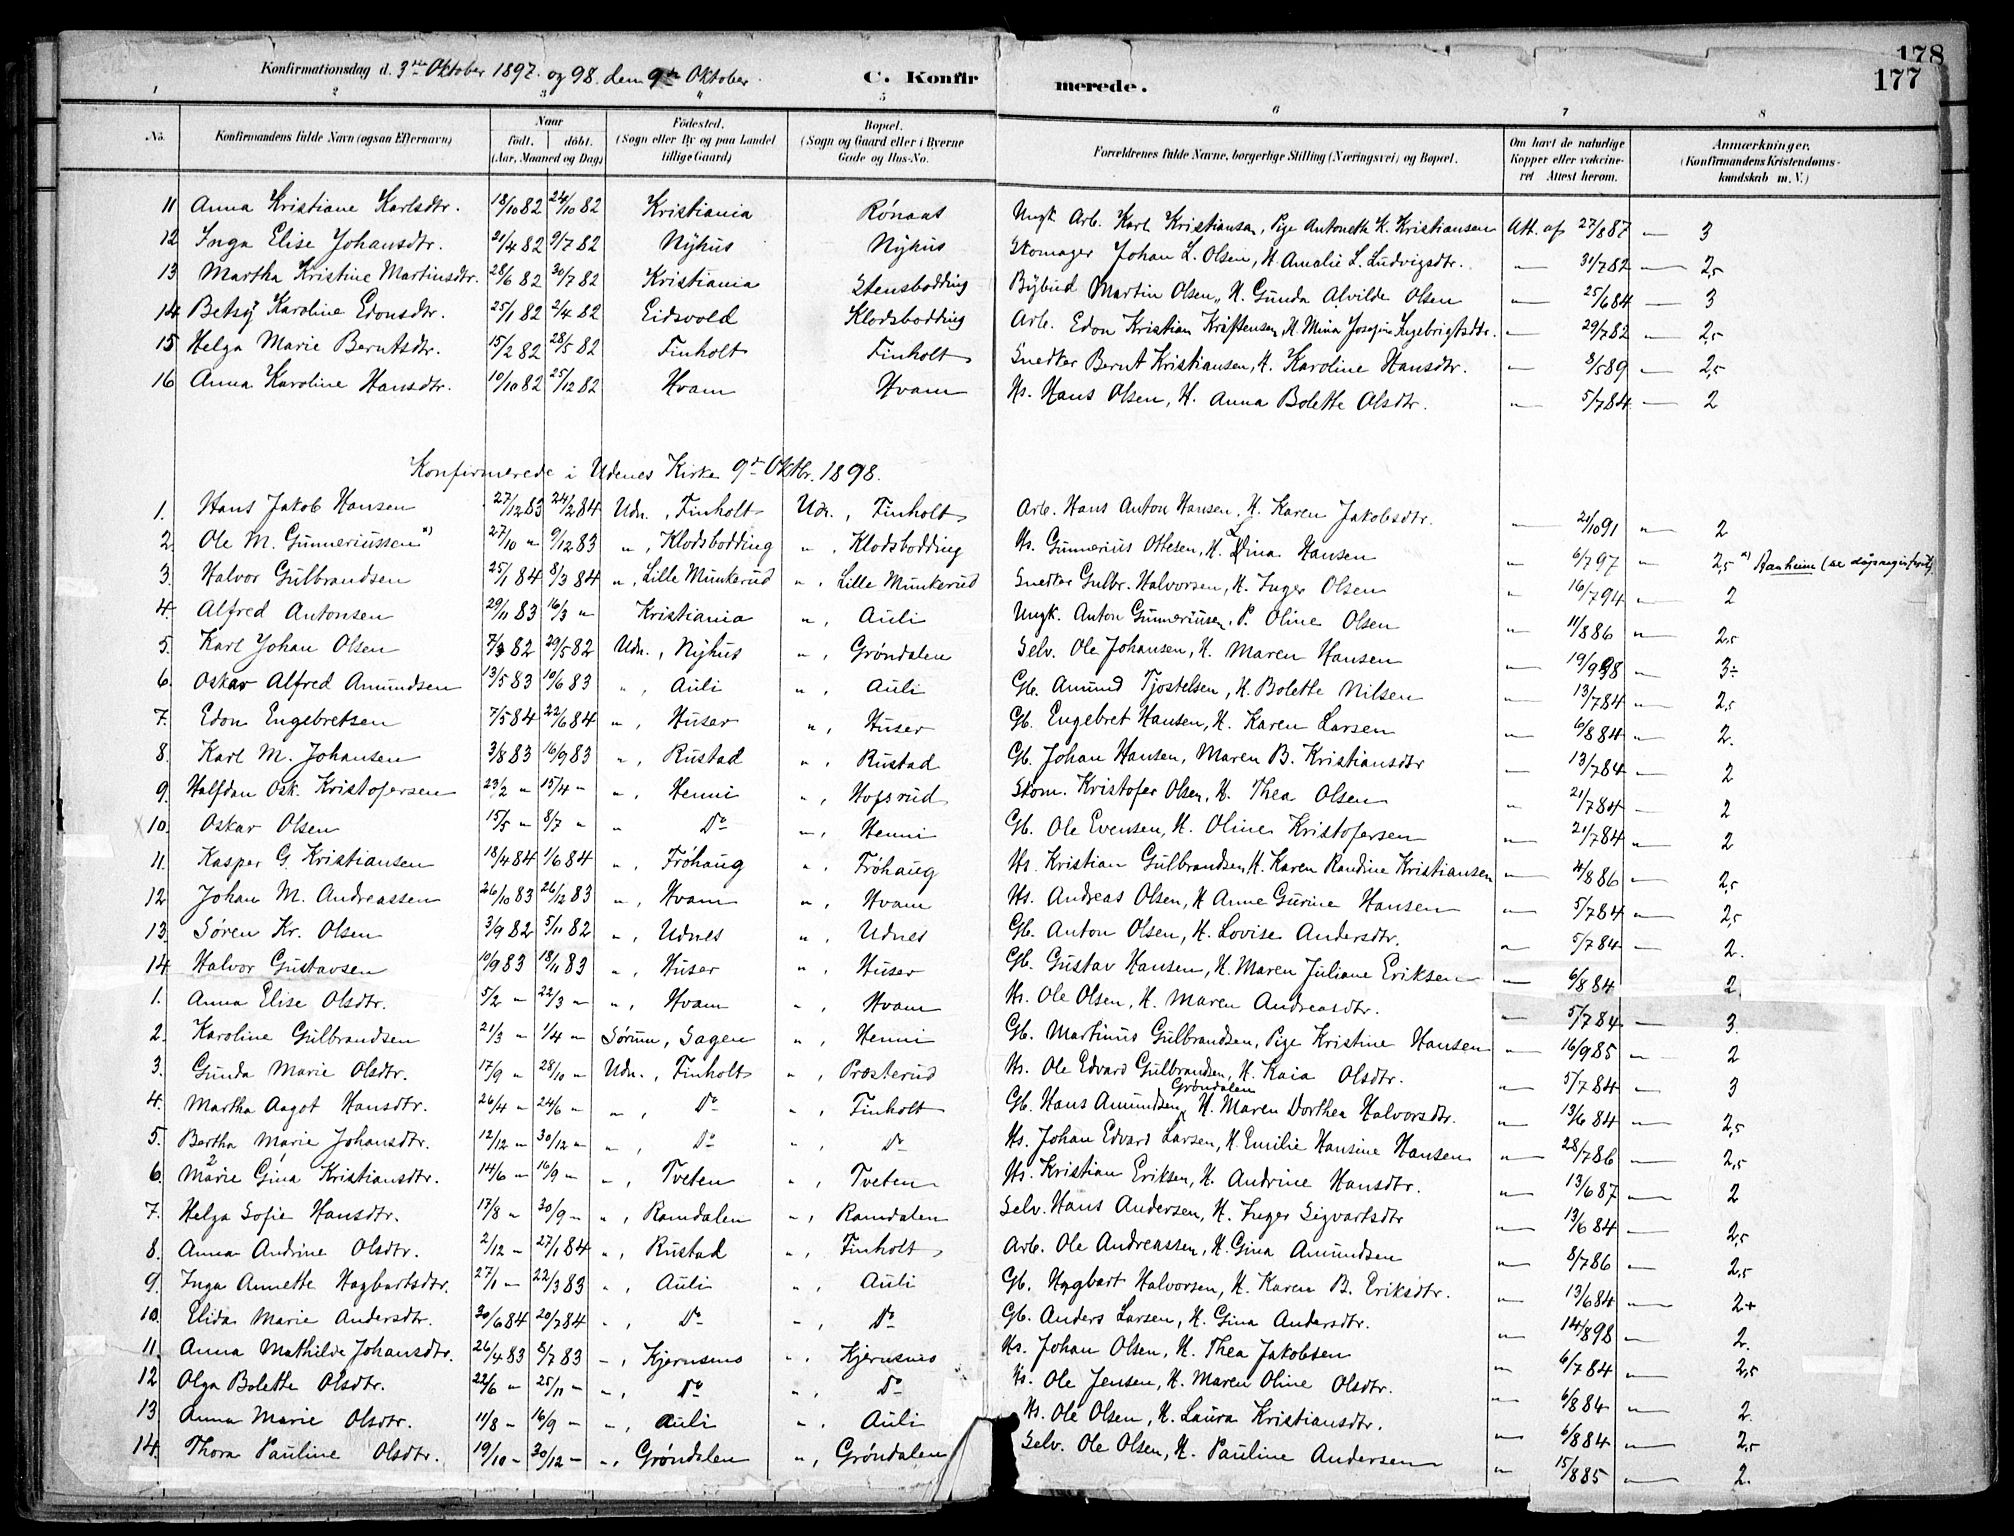 178
177
Konfirmationsdag d. 3die Oktober 1897. og 98. dem 9de Oktober.
C. Konfirmerede.
1 2 3 4 5 6 7 8
No. Konfirmandens fulde Navn (ogsaa Efternavn) Naar født. døbt. (Aar, Maaned og Dag) Fødested. (Sogn eller By og paa Landet tillige Gaard) Bopæl. (Sogn og Gaard eller i Byerne Gade og Hus-No. Forældrenes fulde Navne, borgerlige Stilling (Næringsvei) og Bopæl. Om havt de naturlige Kopper eller vakcineret Attest herom. Anmærkninger. (Konfirmandens Kristendomskundskab m. V.)
11 Anna Kristiane Karlsdtr. 18/10 82 24/10 82 Kristiania Rónaas Ungk. Arb. Karl Kristiansen, Pige Antoneth K. Kristiansen Att. af 27/8 87 — 3
12 Inga Elise Johansdtr. 21/4 82 9/7 82 Nÿhus Nÿhus Skomager Johan L. Olsen, H. Amalie L. Ludvigsdtr. „ 31/7 82 — 2,5
13 Martha Kristine Martinsdtr. 28/6 82 30/7 82 Kristiania Stensbodding Bÿbud Martin Olsen, H. Gunda Alvilde Olsen „ 25/6 84 — 3
14 Betsÿ Karoline Edonsdtr. 25/1 82 2/4 82 Eidsvold Klodsbodding Arb. Edon Kristian Kristensen, H. Mina Josefine Ingebrigtsdtr. „ 29/7 82 — 2,5
15 Helga Marie Berntsdtr. 15/2 82 28/5 82 Finholt Finholt Snedker Bernt Kristiansen, H. Karoline Hansdtr. „ 3/5 89 — 2,5
16 Anna Karoline Hansdtr. 10/10 82 25/12 82 Hvam Hvam Hs. Hans Olsen, H. Anna Bolette Olsdtr. „ 5/7 84 — 2
Konfirmerede i Udenes Kirke 9de Oktbr. 1898.
1. Hans Jakob Hansen 27/12 83 24/2 84 Udn., Finholt Udn., Finholt Arb. Hans Anton Hansen, H. Karen Jakobsdtr. „ 21/10 91 „ 2
2. Ole M. Gunneriussen *) 27/10 „ 9/12 83 „, Klodsbodding „, Klodsbodding Hs. Gunnerius Ottesen, H. Dina Hansen „ 6/7 97 „ 2,5 *) Aanheim (se dåpsregisteret)
3. Halvor Gulbrandsen 25/1 84 8/3 84 „, Lille Munkerud „, Lille Munkerud Snedker Gulbr. Halvorsen, H. Inger Olsen „ 16/7 94 „ 2
4. Alfred Antonsen 29/11 83 16/3 „ Kristiania „, Auli Ungk. Anton Gunneriusen, P. Oline Olsen „ 11/8 86 „ 2,5
5. Karl Johan Olsen 7/3 82 29/5 82 Udn., Nÿhus „, Gróndalen Selv. Ole Johansen, H. Maren Hansen „ 19/9 98 „ 3-
6. Oskar Alfred Amundsen 13/5 83 10/6 83 „, Auli „, Auli Gb. Amund Tjostelsen, H. Bolette Nilsen „ 13/7 84 — 2,5
7. Edon Engebretsen 7/5 84 22/6 84 „, Huser „, Huser Gb. Engebret Hansen, H. Karen Larsen „ 6/8 84 „ 2.
8. Karl M. Johansen 3/8 83 16/9 83 „, Rustad „, Rustad Gb. Johan Hansen, Maren B. Kristiansdtr „ 13/7 84 — 2
9. Halfdan Osk. Kristofersen 23/2 „ 15/4 „ „, Henni „, Hofsrud Skom. Kristofer Olsen, H. Thea Olsen „ 21/7 84 — 2
10. Oskar Olsen 15/5 „ 8/7 „ „ Do „, Henni Gb. Ole Evensen, H. Oline Kristofersen „ 21/7 84 „ 2
11. Kasper G. Kristiansen 18/4 84 1/6 84 „, Fróhaug „, Fróhaug Hs. Kristian Gulbrandsen, H. Karen Randine Kristiansen „ 4/8 86 — 2,5
12 Johan M. Andreassen 26/10 83 26/12 83 „, Hvam „, Hvam Hs. Andreas Olsen, H Anne Gurine Hansen „ 5/7 84 — 2,5
13. Sóren Kr. Olsen 3/9 82 5/11 82 „, Udnes „, Udnes Gb. Anton Olsen, H. Lovise Andersdtr. „ 5/7 84 — 2.
14. Halvor Gustavsen 10/9 83 18/11 83 „, Huser „, Huser Gb. Gustav Hansen, H. Maren Juliane Eriksen „ 6/8 84 2.
1. Anna Elise Olsdtr. 5/2 „ 22/3 „ „, Hvam „, Hvam Hs. Ole Olsen, H. Maren Andreasdtr. „ 5/7 84 — 3.
2. Karoline Gulbrandsen 21/3 „ 1/4 „ Sórum, Sagen „, Henni Gb. Martinus Gulbrandsen, Pige Kristine Hansen „ 16/9 85 „ 2
3. Gunda Marie Olsdtr. 17/9 „ 28/10 „ Udn., Finholt „, Præsterud Hs. Ole Edvard Gulbrandsen, H. Kaia Olsdtr. „ 5/7 84 — 3
4. Martha Aagot Hansdtr. 26/4 „ 24/6 „ „, Do „, Finholt Gb. Hans Amundsen Gröndalen, H. Maren Dorthea Halvorsdtr. „ 13/6 84 — 2,5
5. Bertha Marie Johansdtr. 12/12 „ 30/12 „ „, Do „, Do Hs. Johan Edvard Larsen, H. Emilie Hansine Hansen „ 28/7 86 — 2,5
6. Marie 2 Gina 1 Kristiansdtr. 14/6 „ 16/9 „ „, Tveten „, Tveten Hs. Kristian Eriksen, H. Andrine Hansdtr. „ 13/6 87 — 2
7. Helga Sofie Hansdtr. 17/8 „ 30/9 „ „, Ramdalen „, Ramdalen Selv. Hans Andersen, H. Inger Sigvartsdtr „ 13/6 84 — 2,5
8. Anna Andrine Olsdtr. 2/12 „ 27/1 84 „, Rustad „, Finholt Arb. Ole Andreassen, H. Gina Amundsen „ 8/7 86 — 2,5
9. Inga Annette Hagbartsdtr. 27/1 „ 22/3 83 „, Auli „, Auli Gb. Hagbart Halvorsen, H. Karen B. Eriksdtr. „ 13/6 84 — 2+
10. Elida Marie Andersdtr. 30/6 84 20/7 84 „, Do „, Do Gb. Anders Larsen, H. Gina Andersdtr. „ 14/8 98 — 2.
11. Anna Mathilde Johansdtr. 26/4 83 8/7 83 „, Kjernsmo „, Kjernsmo Hs. Johan Olsen, H. Thea Jakobsen „ 6/7 84 — 2,5
12 Olga Bolette Olsdtr. 22/6 „ 25/11 „ „, Do „, Do Hs. Ole Jensen, H. Maren Oline Olsdtr. „ 6/8 84 — 2.
13 Anna Marie Olsdtr. 11/8 „ 16/9 „ „, Auli „, Auli Hs. Ole Olsen, H. Laura Kristiansdtr. „ 6/8 84 — 2,5
14. Thora Pauline Olsdtr. 19/10 „ 30/12 „ „, Gróndalen „, Gróndalen Selv. Ole Olsen, H. Pauline Andersen „ 15/8 85 — 2.